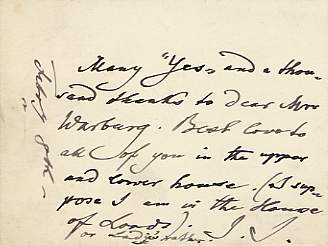 Many "Yes" and a thou-
sand thanks to dear Mrs
Warburg. Best love to
all of you in the upper
and lower house. (I sup-
pose I am in the House
of Lords).
or Ladies rather.